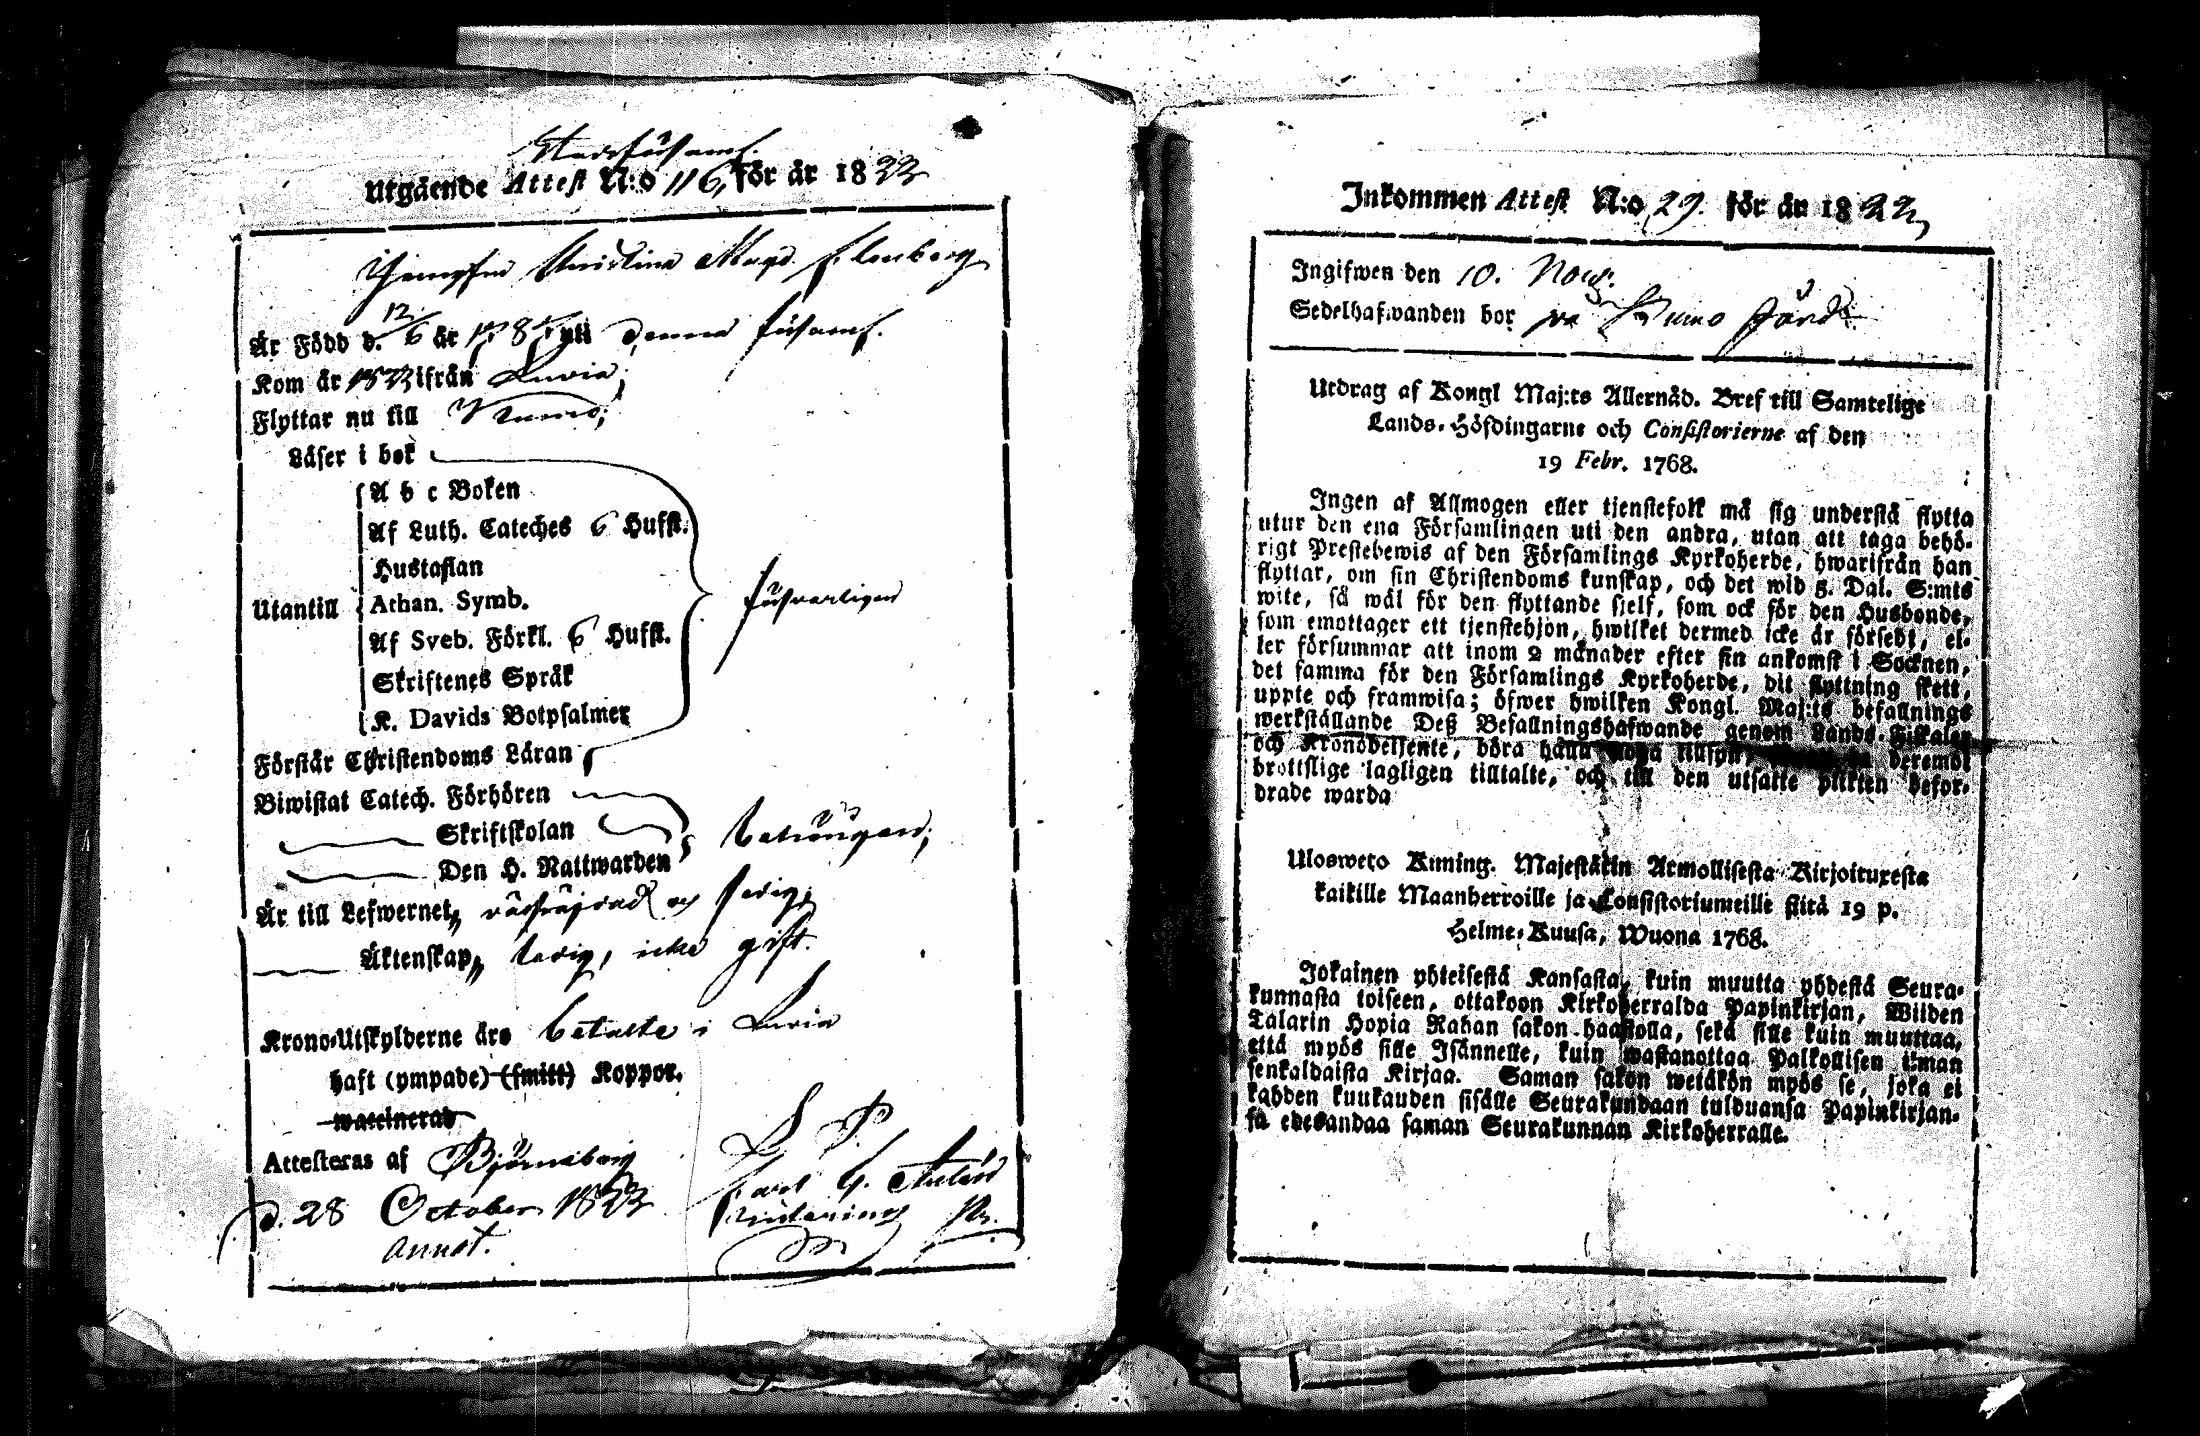 Utgående Attest N:o 116, för år 1822
Christina Magd.
Är Född d. 12/6 år uti denna
Kom år 1822 ifrån Luvia;
Flyttar nu till Kumo;
Läser i bok
A b c Boken
Af Luth. Cateches 6 Hufst.
Hustaflan
Utantill Athan. Symb.
Af Sveb. Förkl. 6 Hufst.
Skriftenes Språk
K. Davids Botpsalmer
försvarligen
Förstår Christendoms Läran
Biwistat Catech. Förhören
Skriftskolan
Den H. Nattwarden
Är till Lefwernet, och
Äktenskap, ledig, icke gift.
Krono-Utskylderne äro betalte i Luvia
haft (ympade) (smitt) Koppor.
waccinerad
Attesteras af Björneborg
d. 28 October 1822
annot.
L P
Inkommen Attest N:o 29. för år 1822
Ingifwen den 10. Nov.
Sedelhafwanden bor på Kumo
Utdrag af Kongl Maj:ts Allernåd. Bref till Samtelige
Lands-Höfdingarne och Consistorierne af den
19 Febr. 1768.
Ingen af Allmogen eller tjenstefolk må sig understå flytta
utur den ena Församlingen uti den andra, utan att taga behö-
rigt Prestebewis af den Församlings Kyrkoherde, hwarifrån han
flyttar, om sin Christendoms kunskap, och det wid 5. Dal. S:mts
wite, så wäl för den flyttande sjelf, som ock för den Husbonde,
som emottager ett tjenstehjon, hwilket dermed icke är försedt, el-
ler försummar att inom 2 månader efter sin ankomst i Socknen,
det samma för den Församlings Kyrkoherde, dit flyttning skett,
uppte och framwisa; öfwer hwilken Kongl. Maj:ts befallnings
werkställande Deß Befallningshafwande genom Lands-Fiskaler
och Kronobetjente, böra hålla noga tillsyn, deremot
brottslige lagligen tilltalte, och till den utsatte plikten befor-
drade warda
Ulosweto Kuning. Majestätin Armollisesta Kirjoituxesta
kaikille Maanherroille ja Consistoriumeille siitä 19 p.
Helme-Kuusa, Wuona 1768.
Jokainen yhteisestä Kansasta, kuin muutta yhdestä Seura-
kunnasta toiseen, ottakoon Kirkoherralda Papinkirjan, Wiiden
Talarin Hopia Rahan sakon haastolla, sekä sille kuin muuttaa,
että myös sille Isännelle, kuin wastanottaa Palkollisen ilman
senkaldaista Kirjaa. Saman sakon wetäkön myös se, joka ei
kahden kuukauden sisälle Seurakundaan tulduansa Papinkirjan-
sa edesandaa saman Seurakunnan Kirkoherralle.